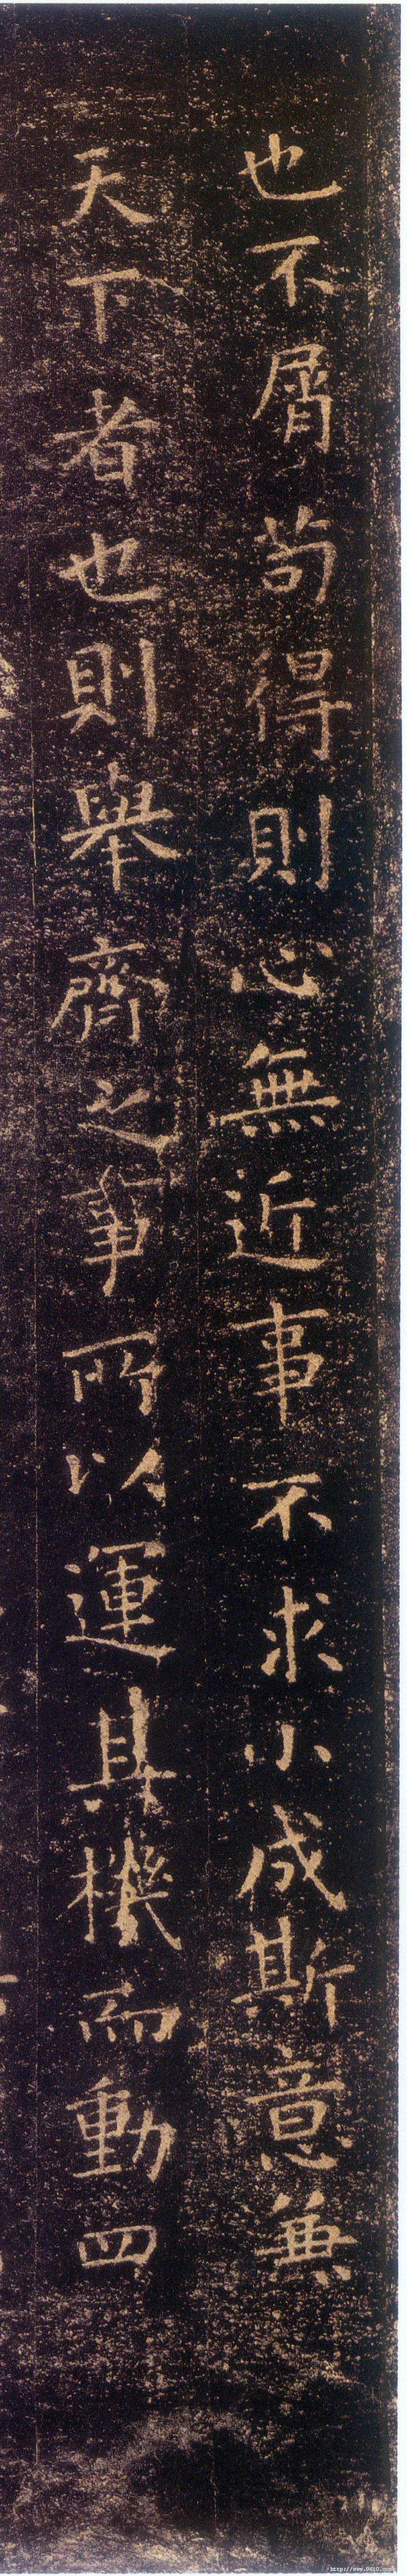 也不屑苟得則心無近事不求小成斯意兼
天下者也則舉齊之事所以運其機而動四
http://www.9610.com